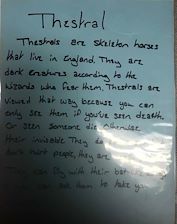 Thestral
Thestrals are Skeleton horses
that live in England. They are
dark creatures according to the
wizards who fear them. Thestrals are
viewed that way because you can
only see them if you've seen death.
Or seen someone die otherwise
their invisible They do
dark hurt people, they are
They can fly with their
can ask them to take you